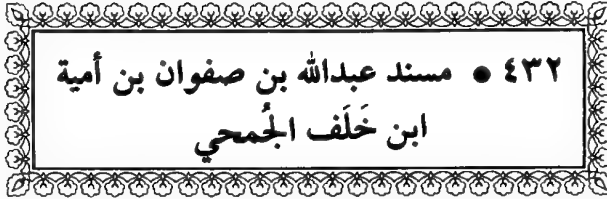 ٤٣٢ • مسند عبدالله بن صفوان بن أمية
ابن خَلَف الجُمحي